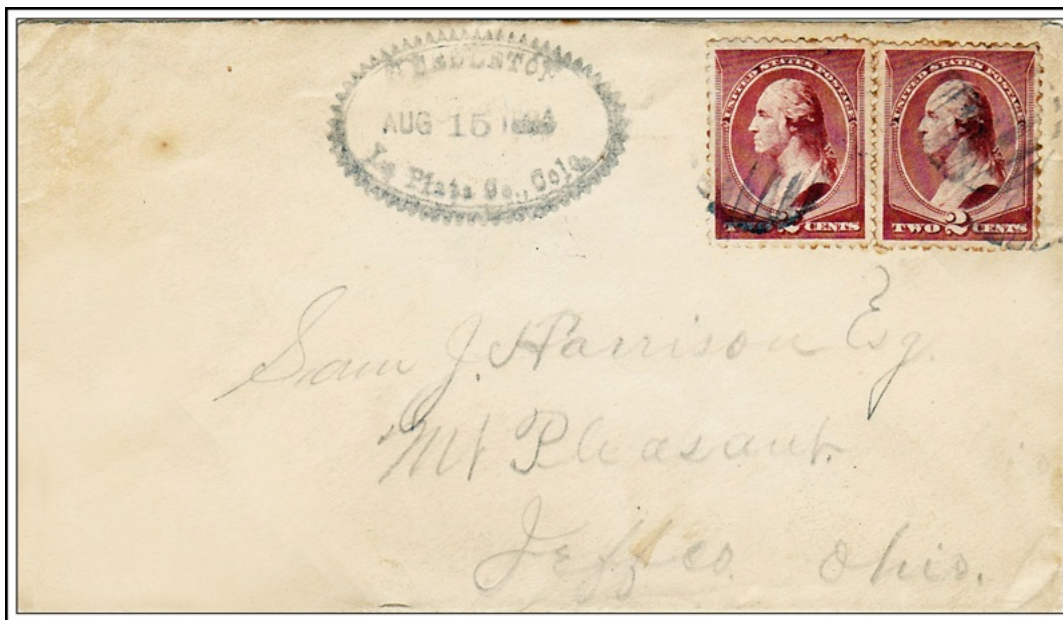 AUG 15
La Plata Co., Colo.
UNITED STATES POSTAGE
CENTS
UNITED STATES POSTAGE
TWO 2 CENTS
Sam J. Harrison Esq.
Mt Pleasant.
Jeff co. Ohio.